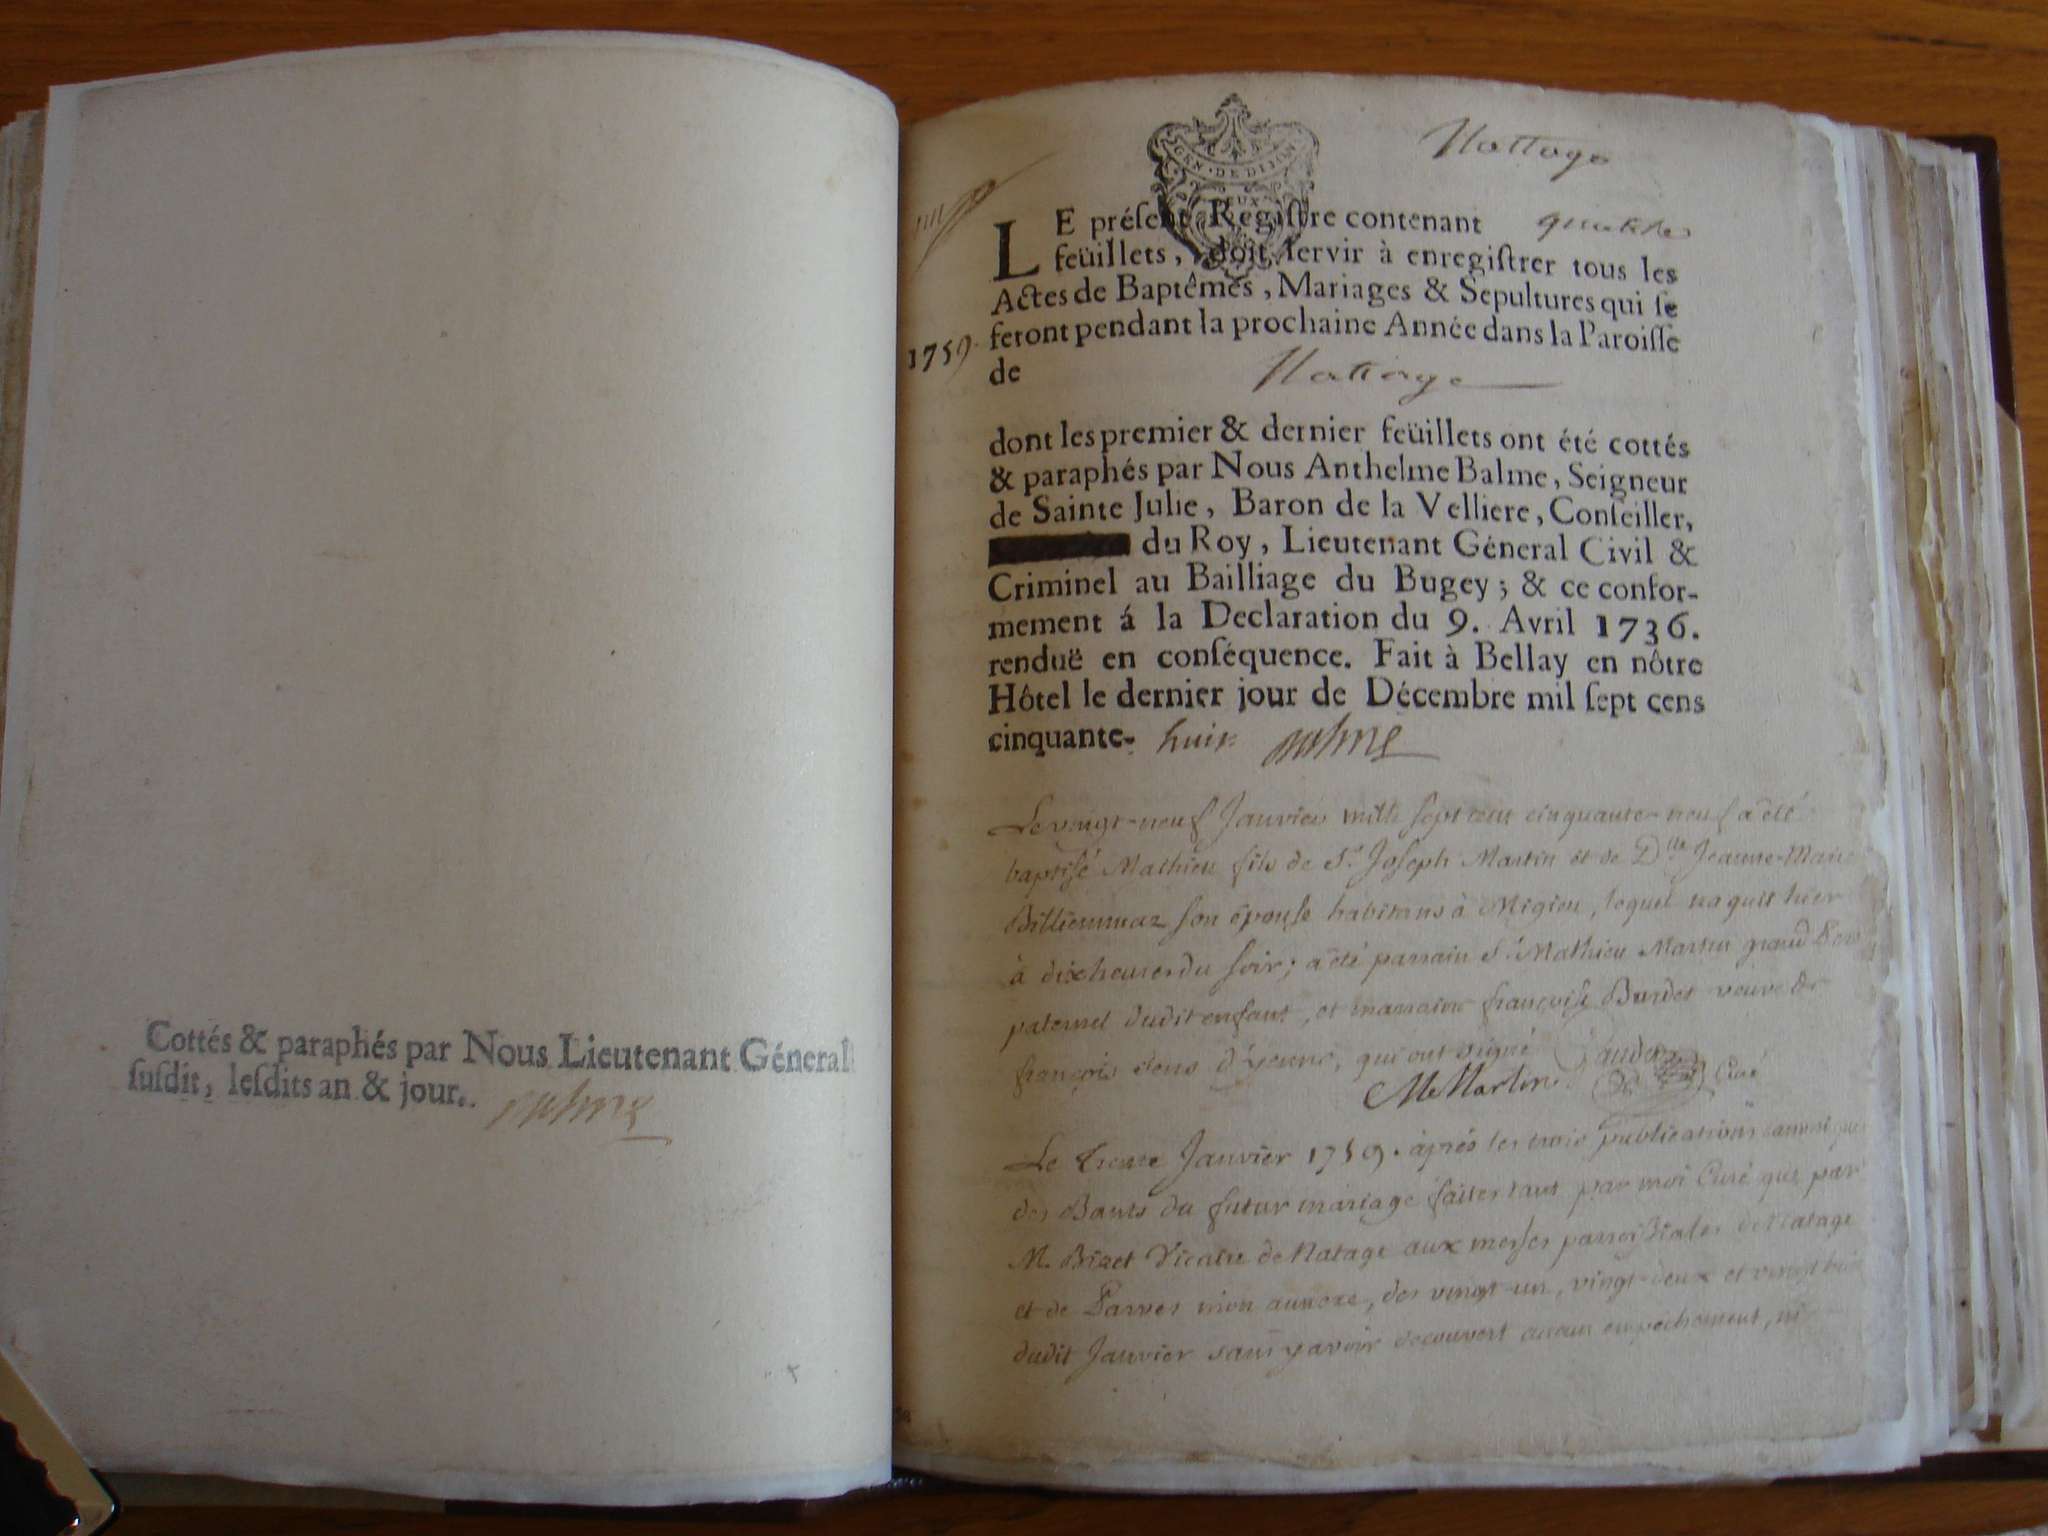 Cottés & paraphés par Nous Lieutenant Géneral
susdit, lesdits an & jour.
Nattage
GEN · DE DIJON
1759.
LE préſent Regiſtre contenant quatre
feüillets, doit ſervir à enregiſtrer tous les
Actes de Baptêmes, Mariages & Sepultures qui ſe
feront pendant la prochaine Année dans la Paroiſſe
de Nattage
dont les premier & dernier feüillets ont été cottés
& paraphés par Nous Anthelme Balme, Seigneur
de Sainte Julie, Baron de la Velliere, Conſeiller,
du Roy, Lieutenant Géneral Civil &
Criminel au Bailliage du Bugey; & ce confor-
mement á la Declaration du 9. Avril 1736.
renduë en conſéquence. Fait à Bellay en nôtre
Hôtel le dernier jour de Décembre mil ſept cens
cinquante- huit
Le vingt-neuf Janvier mille sept cent cinquante neuf a été
baptisé Mathieu fils de Sr. Joseph Martin et de Dlle Jeanne-Marie
Billiemmaz son épouse habitans à Migieu, lequel naquit hier
à dix heures du soir; a été parrain Sr. Mathieu Martin grand Pere
paternel dudit enfant, et marraine françoise Burdet veuve de
françois d'yenne, qui ont signé
M Martin Curé
Le trente Janvier 1759. après les trois publications
des Bancs du futur mariage faites tant par moi Curé que par
M. Bizet Vicaire de Natage aux messes parroissiales de Natage
et de Parves mon annexe, des vingt-un, vingt-deux et vingt huit
dudit Janvier sans y avoir decouvert aucun empechement, ni